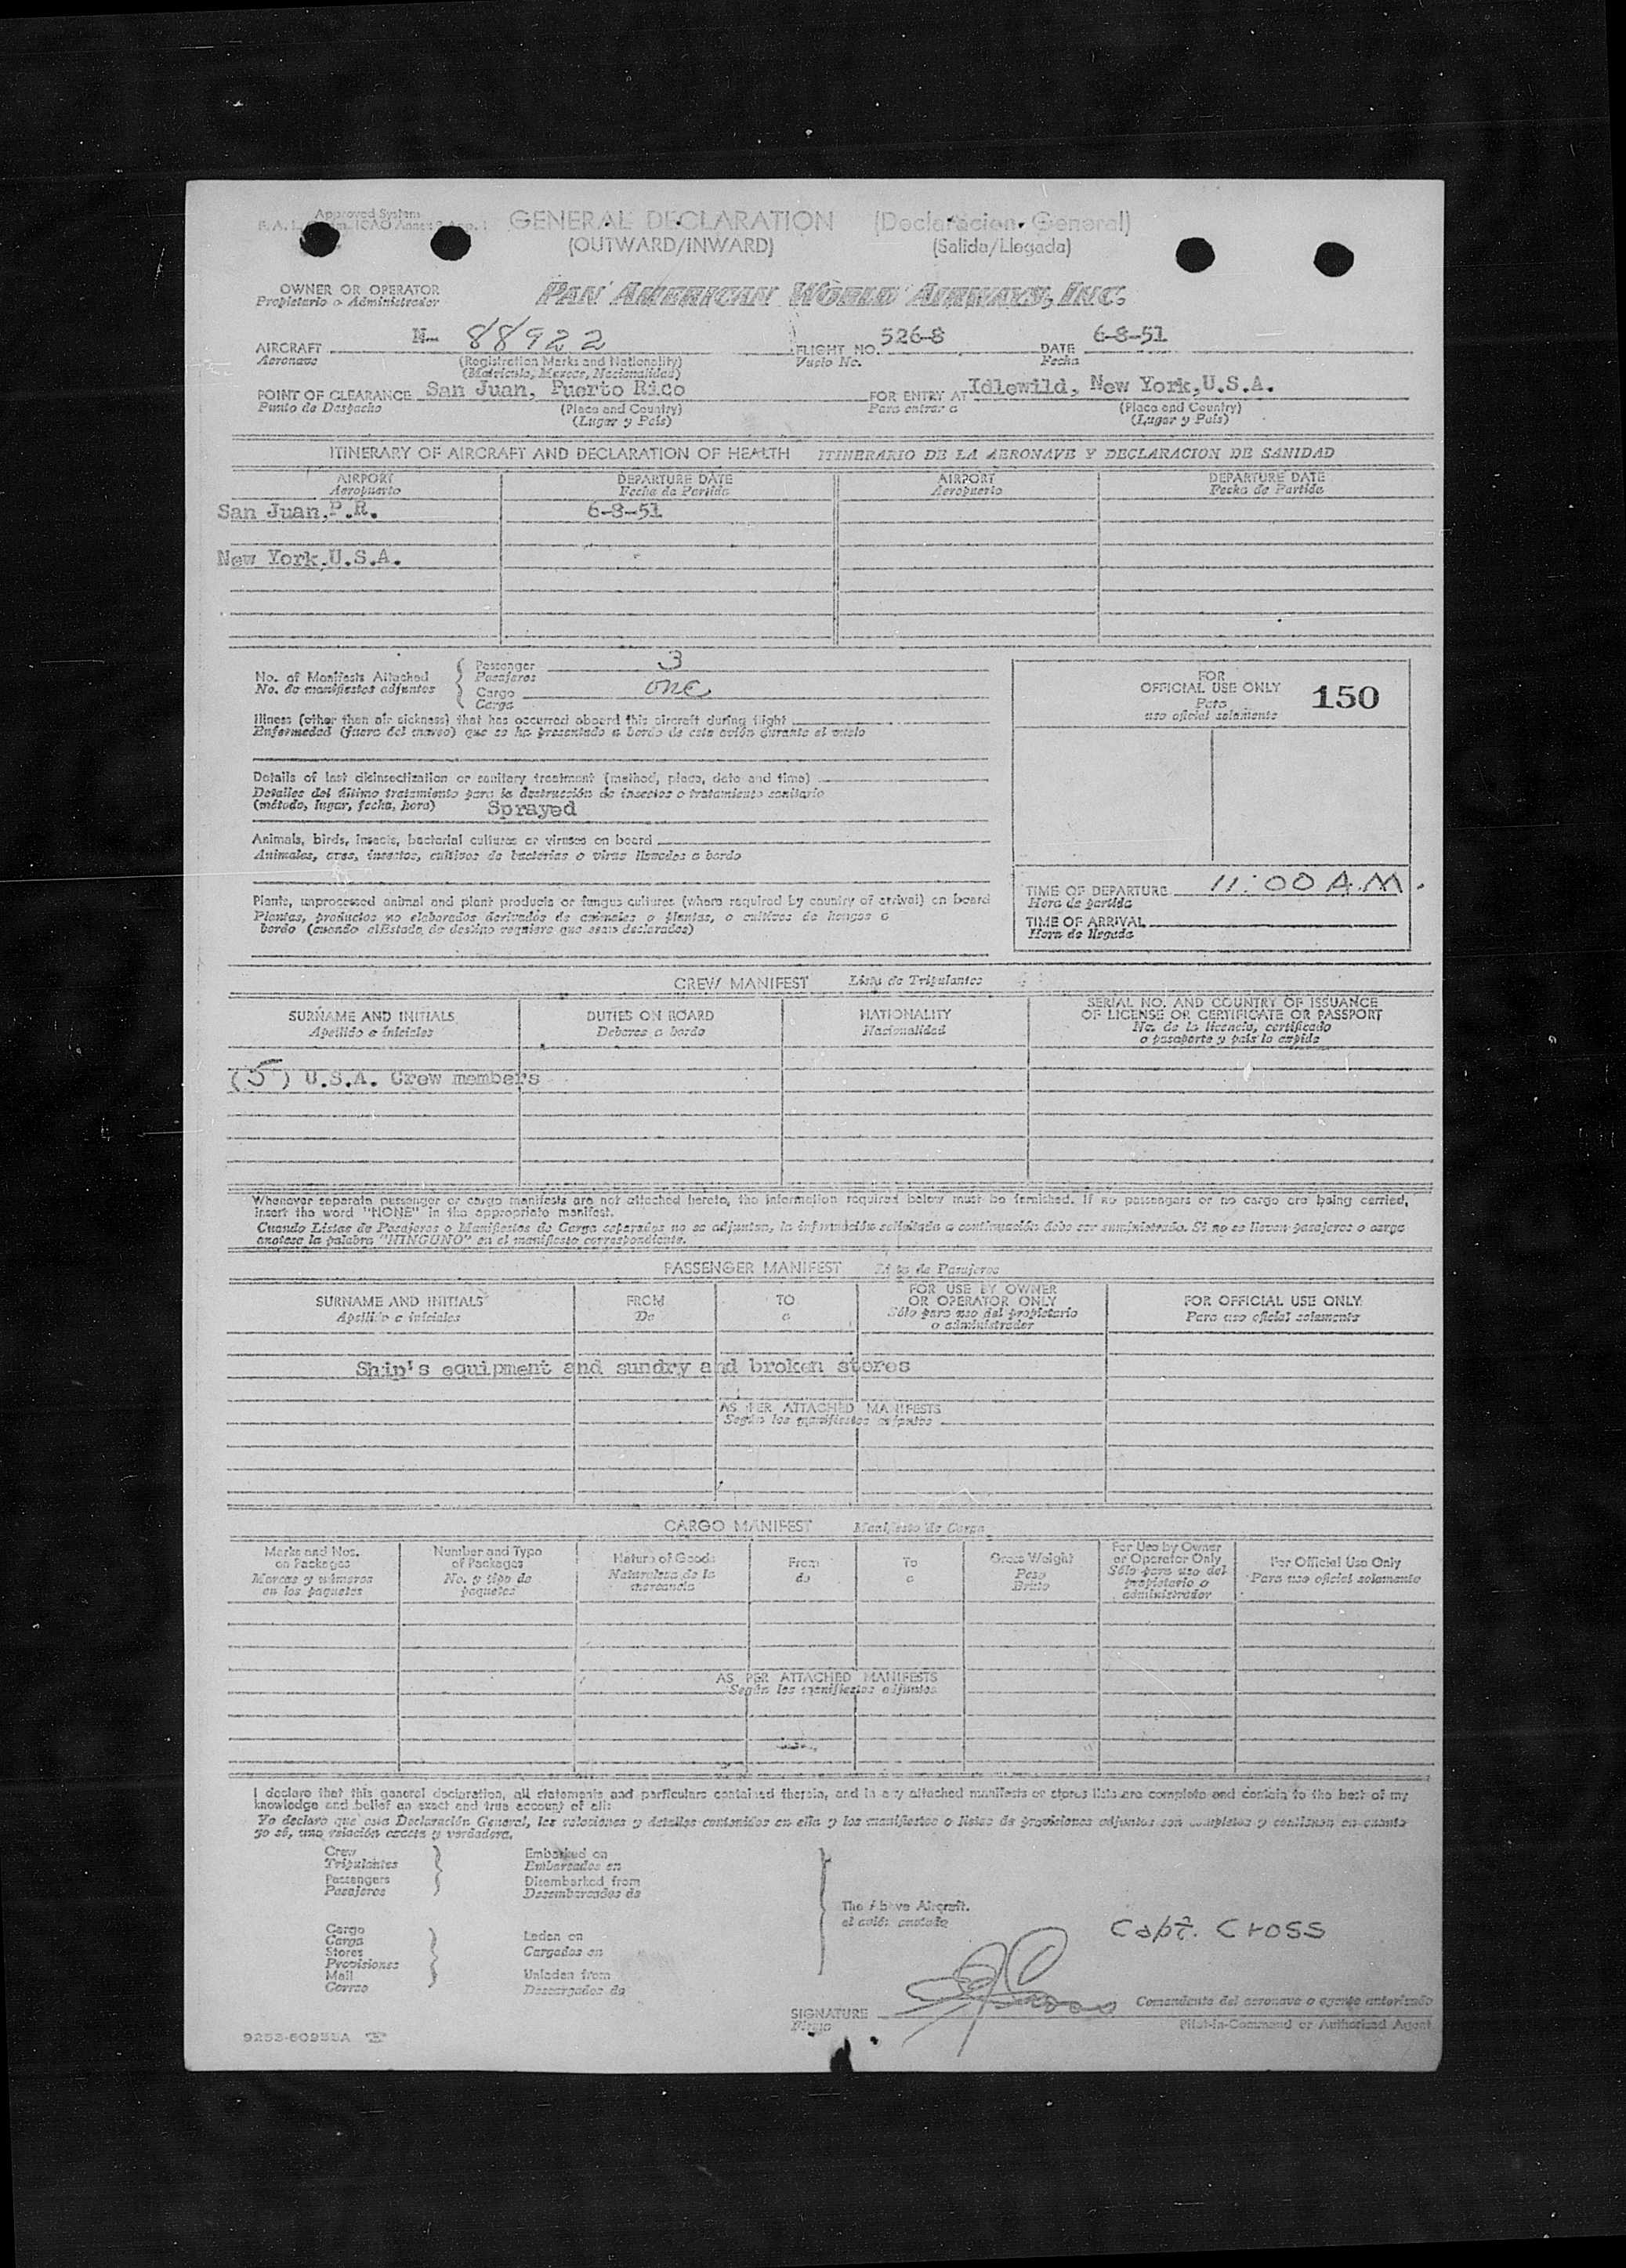 Approved System
GENERAL DECLARATION (Declaracion General)
(OUTWARD/INWARD) (Salida/Llegada)
OWNER OR OPERATOR
Propietario o Administrador
PAN AMERICAN WORLD AIRWAYS, INC.
AIRCRAFT N- 88922 FLIGHT NO. 526-8 DATE 6-8-51
Aeronave (Registration Marks and Nationality) Vuelo No. Fecha
(Matricula, Marcas, Nacionalidad)
POINT OF CLEARANCE San Juan, Puerto Rico FOR ENTRY AT Idlewild, New York, U.S.A.
Punto de Despacho (Place and Country) Para entrar a (Place and Country)
(Lugar y País) (Lugar y País)
ITINERARY OF AIRCRAFT AND DECLARATION OF HEALTH ITINERARIO DE LA AERONAVE Y DECLARACION DE SANIDAD
AIRPORT DEPARTURE DATE AIRPORT DEPARTURE DATE
Aeropuerto Fecha de Partida Aeropuerto Fecha de Partida
San Juan, P.R. 6-8-51
New York, U.S.A.
No. of Manifests Attached Passenger 3
No. de manifiestos adjuntos Pasajeros
Cargo one
Carga
FOR
OFFICIAL USE ONLY 150
Para
uso oficial solamente
Illness (other than air sickness) that has occurred aboard this aircraft during flight
Enfermedad (fuera del mareo) que se ha presentado a bordo de este avión durante el vuelo
Details of last disinsectization or sanitary treatment (method, place, date and time)
Detalles del último tratamiento para la destrucción de insectos o tratamiento sanitario
(método, lugar, fecha, hora) Sprayed
Animals, birds, insects, bacterial cultures or viruses on board
Animales, aves, insectos, cultivos de bacterias o virus llevados a bordo
Plants, unprocessed animal and plant products or fungus cultures (where required by country of arrival) on board
Plantas, productos no elaborados derivados de animales o plantas, o cultivos de hongos a
bordo (cuando el Estado de destino requiere que sean declarados)
TIME OF DEPARTURE 11:00 A.M.
Hora de partida
TIME OF ARRIVAL
Hora de llegada
CREW MANIFEST Lista de Tripulantes
SURNAME AND INITIALS DUTIES ON BOARD NATIONALITY SERIAL NO. AND COUNTRY OF ISSUANCE
OF LICENSE OR CERTIFICATE OR PASSPORT
Apellido e iniciales Deberes a bordo Nacionalidad No. de la licencia, certificado
o pasaporte y país lo expide
(5) U.S.A. Crew members
Whenever separate passenger or cargo manifests are not attached hereto, the information required below must be furnished. If no passengers or no cargo are being carried,
insert the word "NONE" in the appropriate manifest.
Cuando Listas de Pasajeros o Manifiestos de Carga separados no se adjunten, la información solicitada a continuación debe ser suministrada. Si no se llevan pasajeros o carga
anotese la palabra "NINGUNO" en el manifiesto correspondiente.
PASSENGER MANIFEST Lista de Pasajeros
SURNAME AND INITIALS FROM TO FOR USE BY OWNER
OR OPERATOR ONLY FOR OFFICIAL USE ONLY
Apellido e iniciales De a Sólo para uso del propietario
o administrador Para uso oficial solamente
Ship's equipment and sundry and broken stores
AS PER ATTACHED MANIFESTS
Según los manifiestos adjuntos
CARGO MANIFEST Manifiesto de Carga
Marks and Nos.
on Packages
Marcas y números
en los paquetes
Number and Type
of Packages
No. y tipo de
paquetes
Nature of Goods
Naturaleza de la
mercancia
From
de
To
a
Gross Weight
Peso
Bruto
For Use by Owner
or Operator Only
Sólo para uso del
propietario o
administrador
For Official Use Only
Para uso oficial solamente
AS PER ATTACHED MANIFESTS
Según los manifiestos adjuntos
I declare that this general declaration, all statements and particulars contained therein, and in any attached manifests or stores lists are complete and contain to the best of my
knowledge and belief an exact and true account of all:
Yo declaro que esta Declaración General, las relaciones y detalles contenidos en ella y los manifiestos o listas de provisiones adjuntos son completos y contienen en cuanto
yo sé, una relación exacta y verdadera.
Crew
Tripulantes
Passengers
Pasajeros
Embarked on
Embarcados en
Disembarked from
Desembarcados de
Cargo
Carga
Stores
Provisiones
Mail
Correo
Laden on
Cargados en
Unladen from
Descargados de
The Above Aircraft.
el avión anotado
Capt. Cross
SIGNATURE Comandante del aeronave o agente autorizado
Firma Pilot-in-Command or Authorized Agent